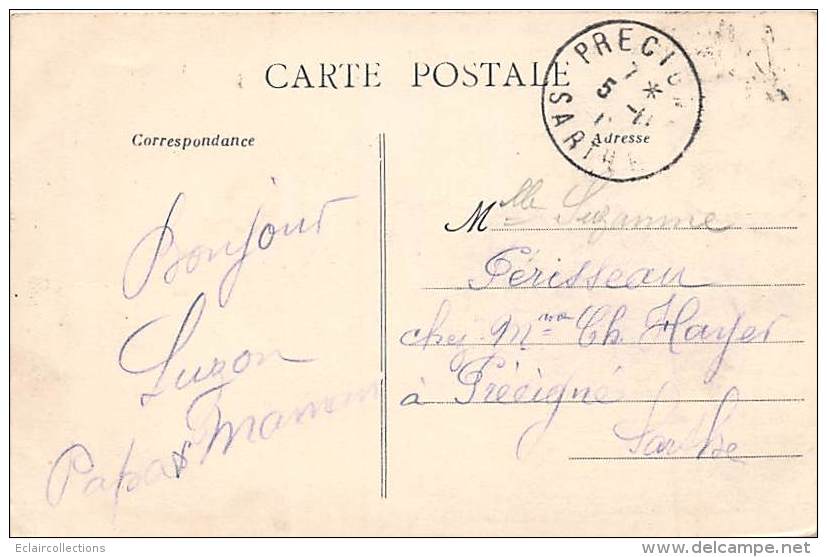 CARTE POSTALE
PRECIGN
SARTHE
7 *
5 -11
Correspondance
Adresse
Bonjour
Suzon
Papa & Maman
Mlle Suzanne
Périsseau
chez Mme Ch. Hayer
à Précigné
Sarthe
Eclaircollections
delcampe.net